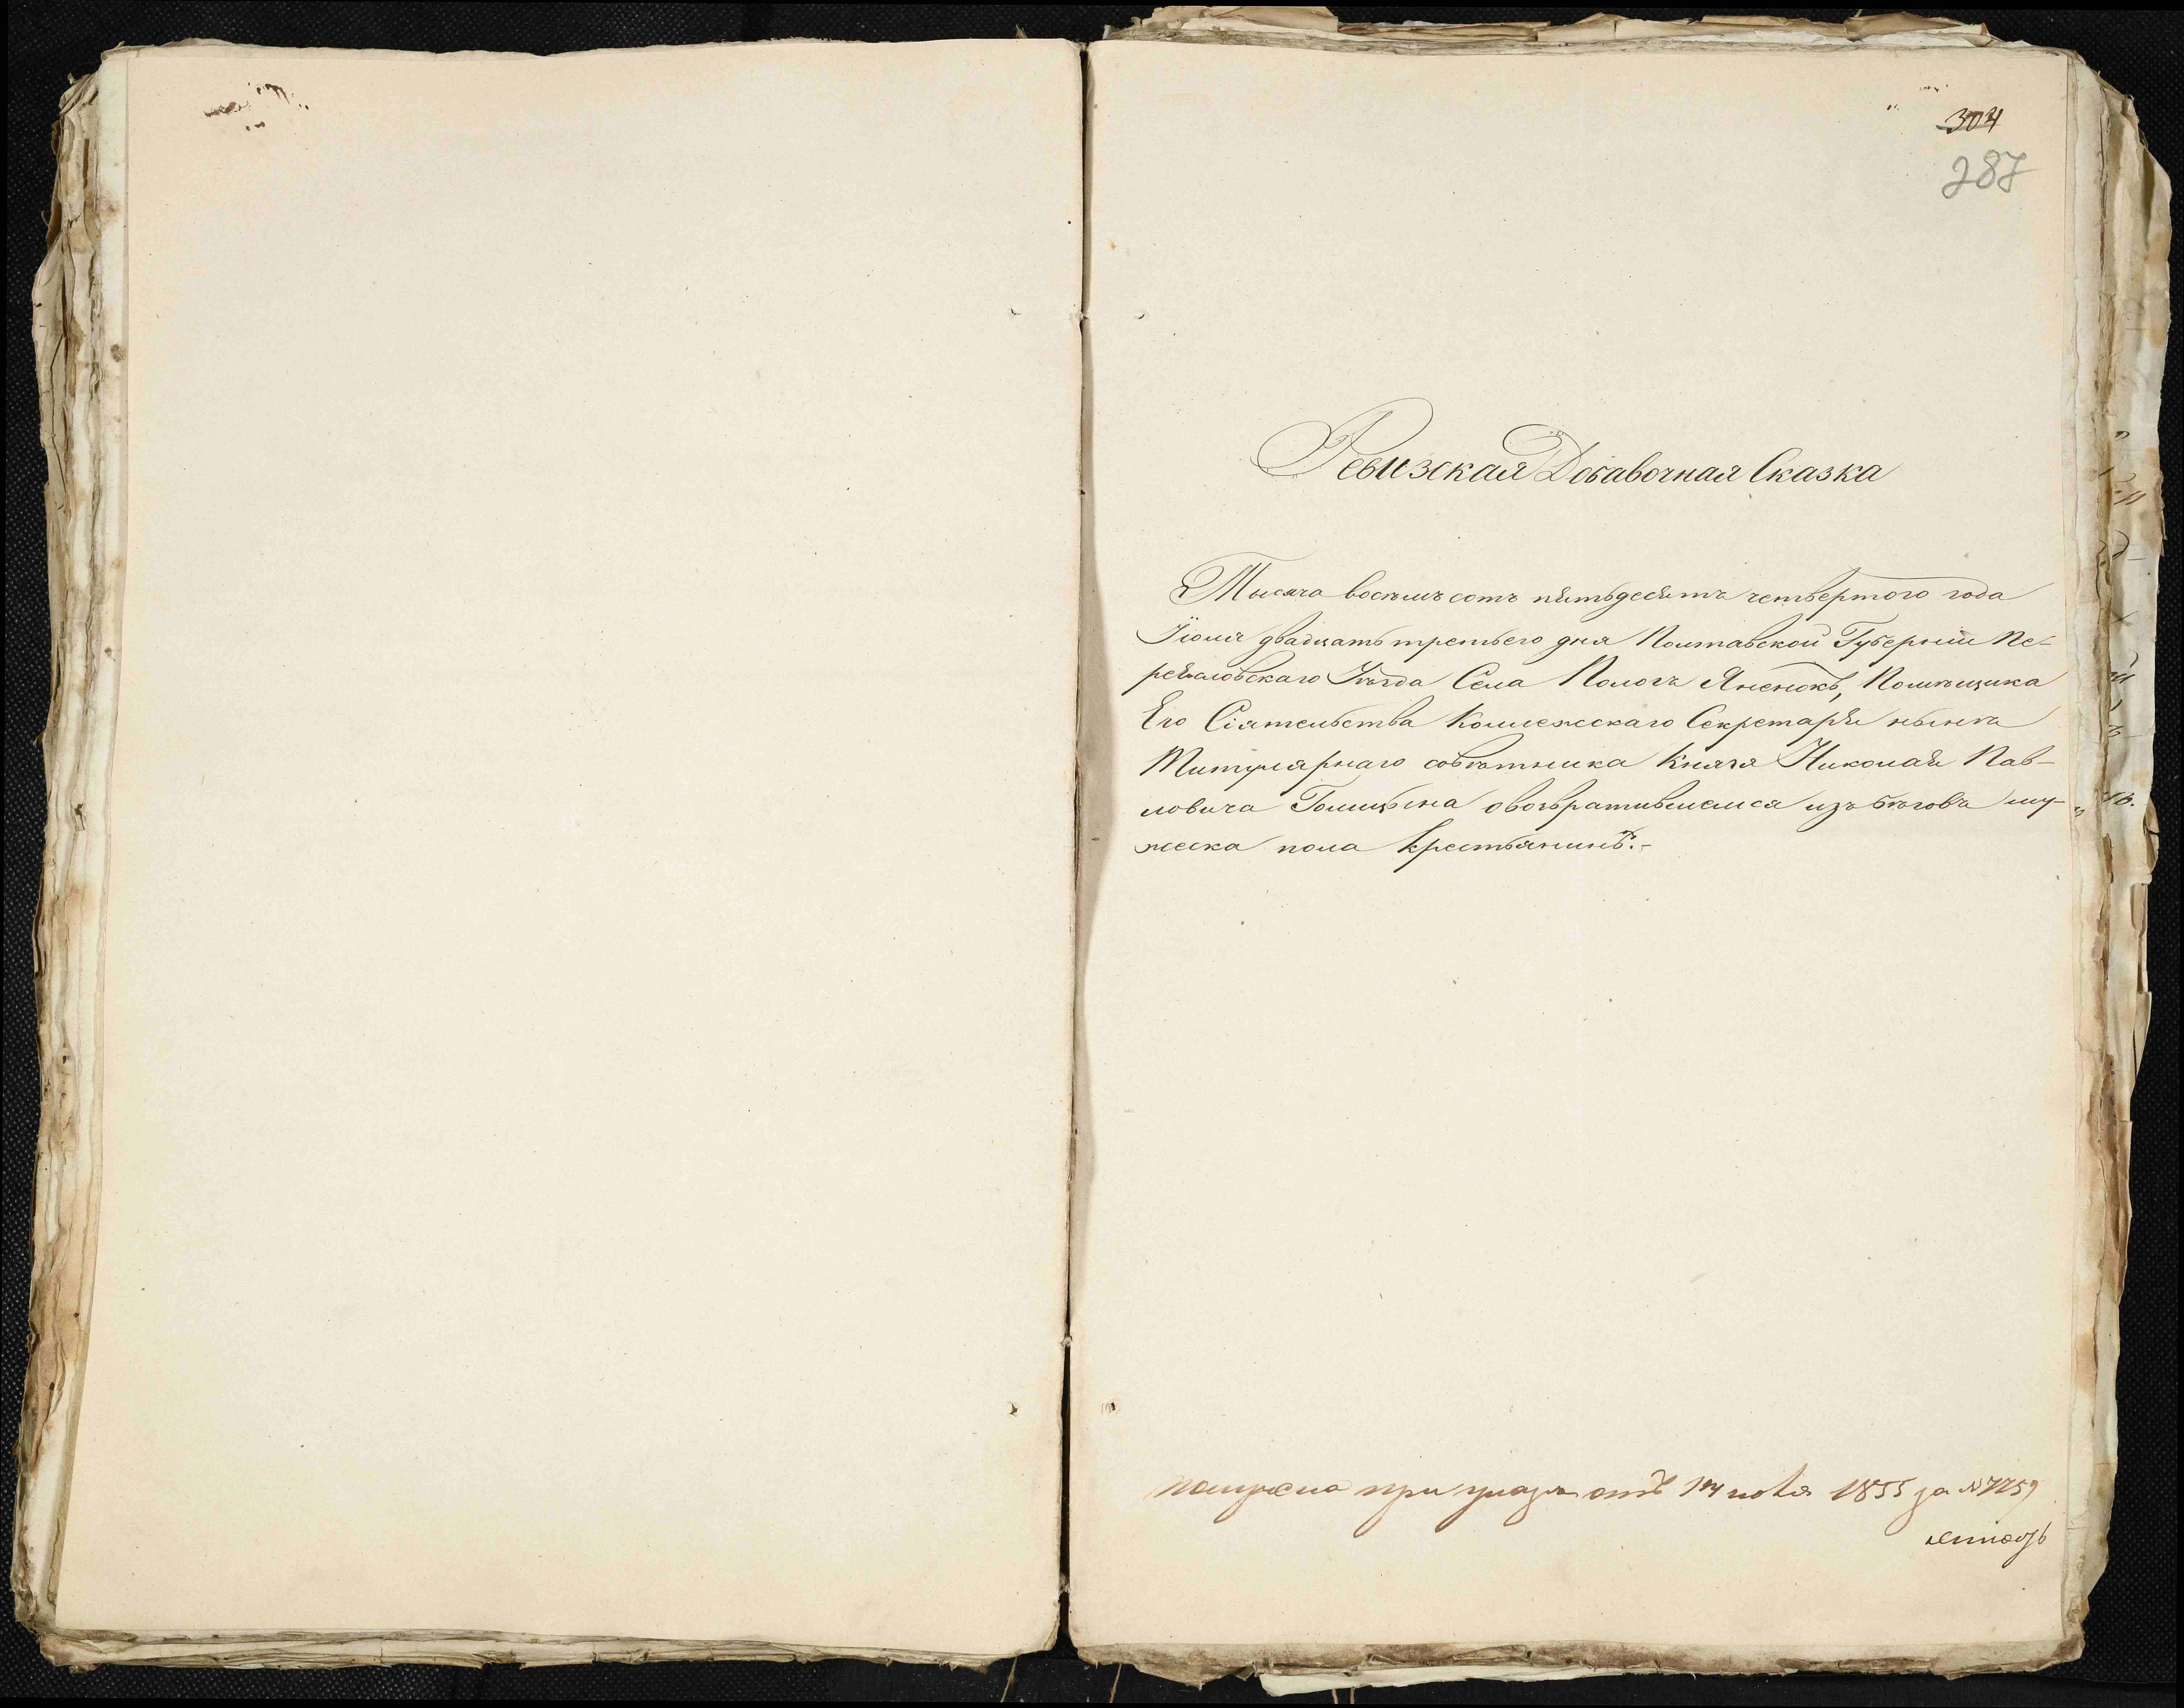 304
287
Ревизская Добавочная Сказка
Тысяча восемь сотъ пятьдесятъ четвертого года
Іюля двадцать третьего дня Полтавской Губерніи Пе-
реяловскаго Уѣзда Села Пологъ Яненокъ, Помѣщика
Его Сіятельства Коллежскаго Секретаря нынѣ
Титулярнаго совѣтника Князя Николая Пав-
ловича Голицына овозвратившемся изъ бѣговъ му-
жеска пола крестьянинѣ.-
получена при указѣ отъ 14 1855 за №7259